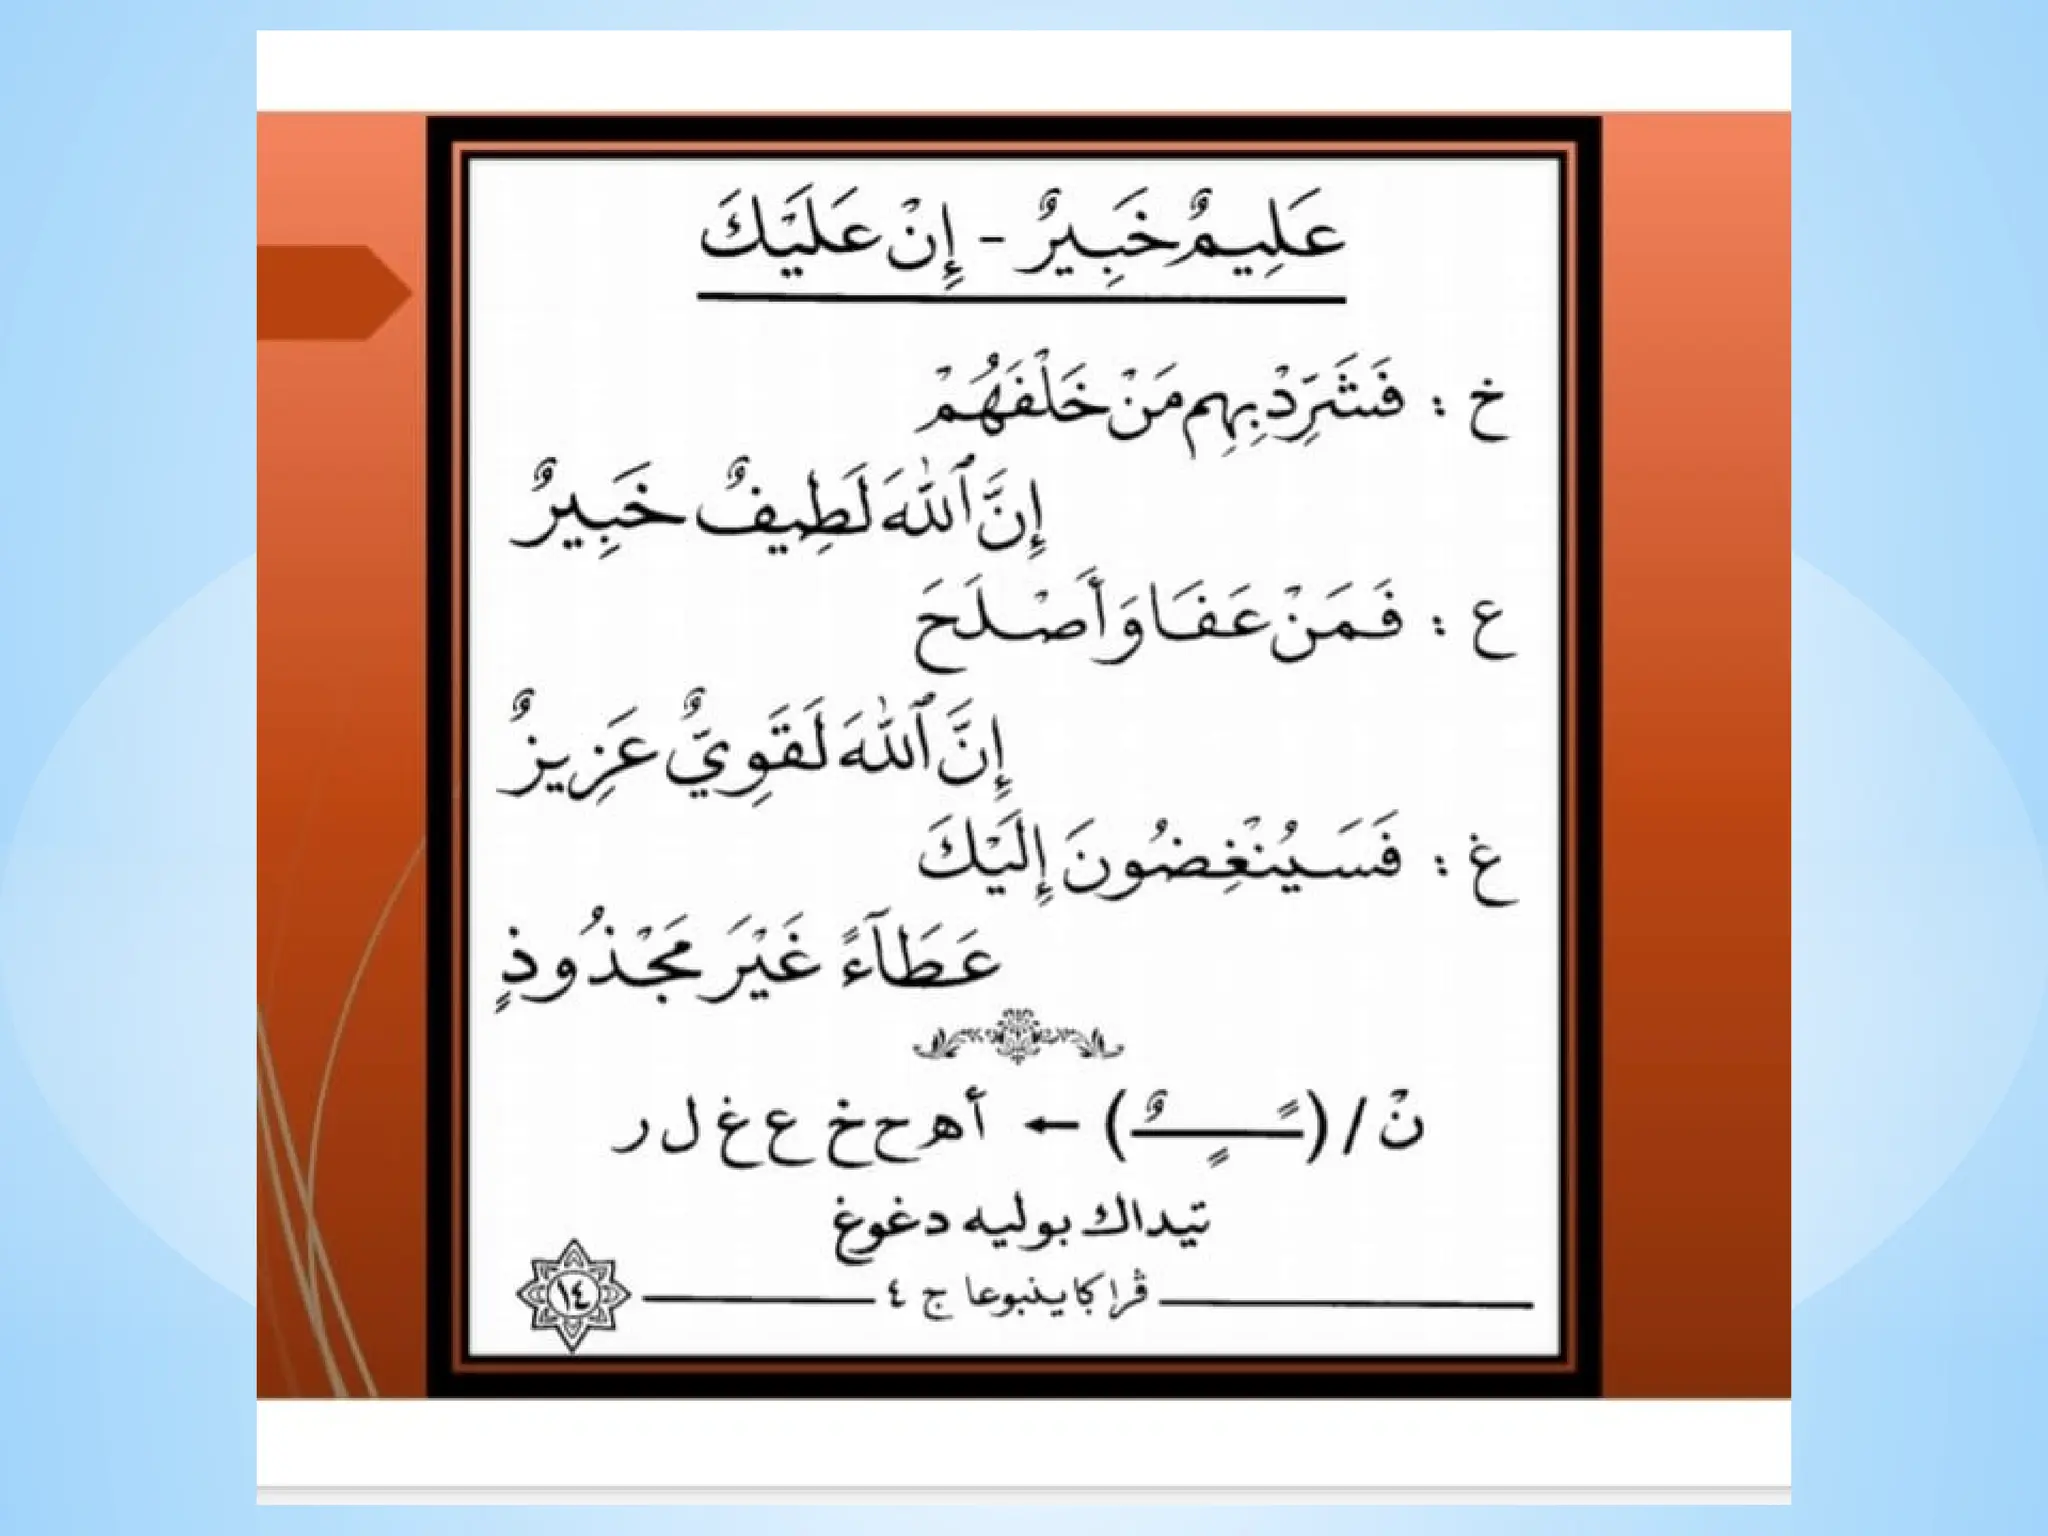 عَلِيمٌ خَبِيرٌ - إِنْ عَلَيْكَ
خ : فَشَرِّدْ بِهِم مَنْ خَلْفَهُمْ
إِنَّ ٱللّٰهَ لَطِيفٌ خَبِيرٌ
ع : فَمَنْ عَفَا وَأَصْلَحَ
إِنَّ ٱللّٰهَ لَقَوِيٌّ عَزِيزٌ
غ : فَسَيُنْغِضُونَ إِلَيْكَ
عَطَآءً غَيْرَ مَجْذُوذٍ
نْ / (ـًـٍـٌ) ← أ هـ ح خ ع غ ل ر
تيداك بوليه دغوغ
ڤراكتاينبوعا ج ٤
١٤